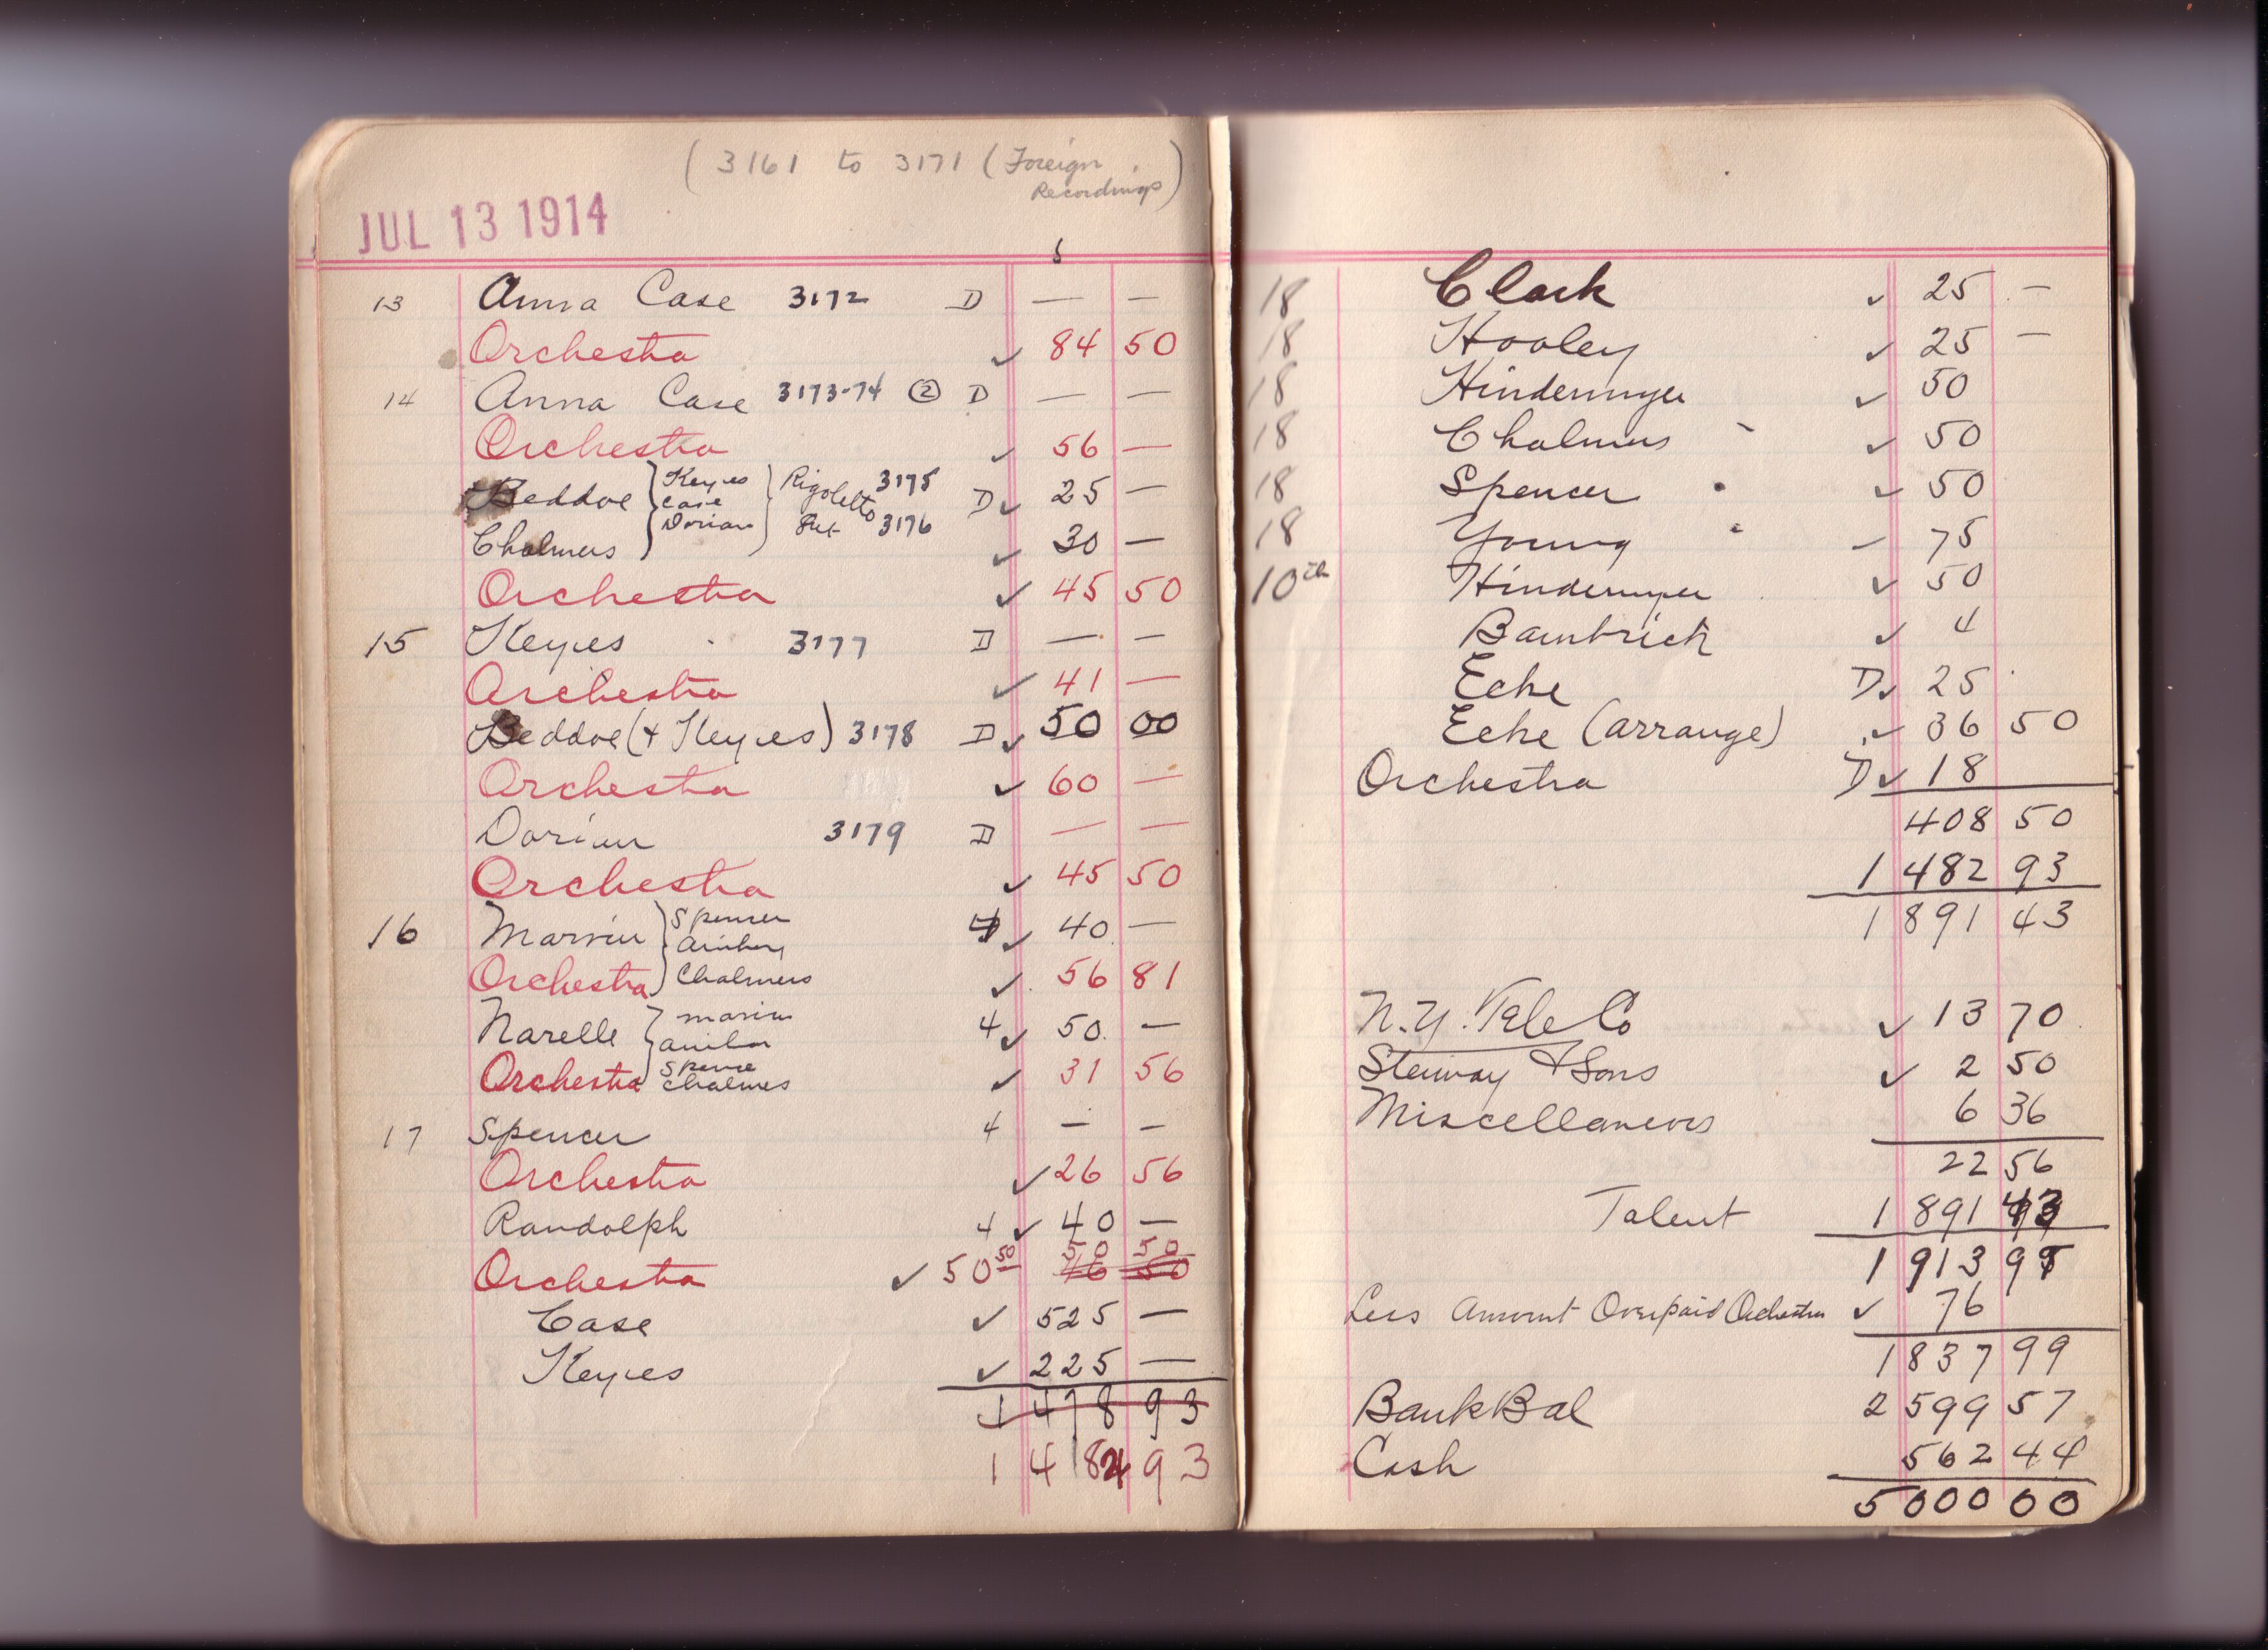 ( 3161 to 3171 ( Foreign
Recordings )
JUL 13 1914
13 Anna Case 3172 D — —
Orchestra ✓ 84 50
14 Anna Case 3173-74 ② D — —
Orchestra ✓ 56 —
Beddoe } Keyes Case Dorian } Rigoletto 3175 D ✓ 25 —
Chalmers 3176 ✓ 30 —
Orchestra ✓ 45 50
15 Keyes 3177 D — —
Orchestra ✓ 41 —
Beddoe (+ Keyes) 3178 D ✓ 50 00
Orchestra ✓ 60 —
Dorian 3179 D — —
Orchestra ✓ 45 50
16 Marvin } Spencer 4 ✓ 40 —
Orchestra } Chalmers ✓ 56 81
Narelle } Marvin 4 ✓ 50 —
Orchestra } Spencer Chalmers ✓ 31 56
17 Spencer 4 — —
Orchestra ✓ 26 56
Randolph 4 ✓ 40 —
Orchestra ✓ 50 50 50 50
Case ✓ 525 —
Keyes ✓ 225 —
1 478 93
1 482 93
18 Clark ✓ 25 —
18 Hooley ✓ 25 —
18 Hindermyer ✓ 50
18 Chalmers " ✓ 50
18 Spencer " ✓ 50
18 Young " – 75
10th Hindermyer ✓ 50
Bambrick ✓ 4
Ecke D ✓ 25
Ecke (arrange) ✓ 36 50
Orchestra D ✓ 18
408 50
1 482 93
1 891 43
N.Y. Tele Co ✓ 13 70
Steinway & Sons ✓ 2 50
Miscellaneous 6 36
22 56
Talent 1 891 43
1 913 99
Less Amount Overpaid Orchestra ✓ 76
1 837 99
Bank Bal 2 599 57
Cash 562 44
5 000 00